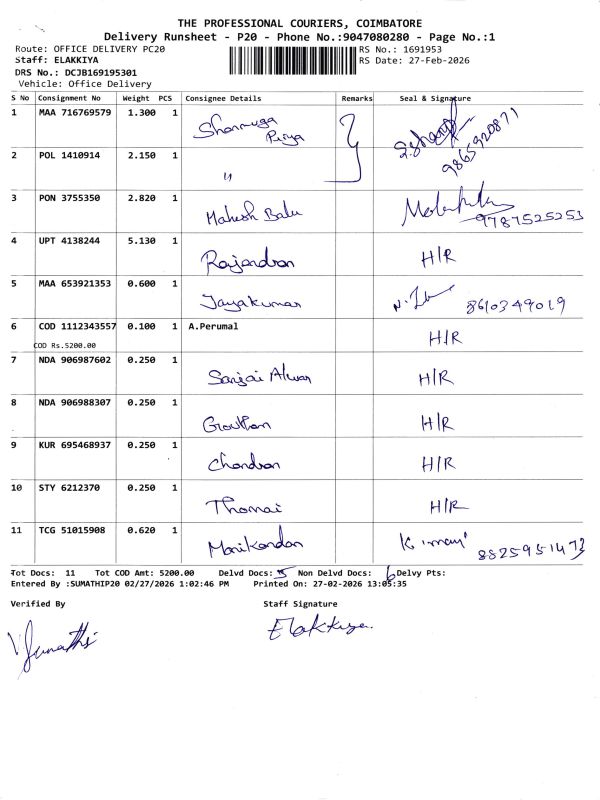 THE PROFESSIONAL COURIERS, COIMBATORE
Delivery Runsheet - P20 - Phone No.:9047080280 - Page No.:1
Route: OFFICE DELIVERY PC20
RS No.: 1691953
Staff: ELAKKIYA
RS Date: 27-Feb-2026
DRS No.: DCJB169195301
Vehicle: Office Delivery
S No Consignment No Weight PCS Consignee Details Remarks Seal & Signature
1 MAA 716769579 1.300 1 Shanmuga Priya 9865920871
2 POL 1410914 2.150 1 "
3 PON 3755350 2.820 1 Mahesh Babu 9787525253
4 UPT 4138244 5.130 1 Rajendran H/R
5 MAA 653921353 0.600 1 Jayakumar 8610349019
6 COD 1112343557 0.100 1 A.Perumal H/R
COD Rs.5200.00
7 NDA 906987602 0.250 1 Sanjai Alwar H/R
8 NDA 906988307 0.250 1 Gowthan H/R
9 KUR 695468937 0.250 1 Chandran H/R
10 STY 6212370 0.250 1 Thomai H/R
11 TCG 51015908 0.620 1 Manikandan K. mani 8825951473
Tot Docs: 11 Tot COD Amt: 5200.00 Delvd Docs: 5 Non Delvd Docs: 6 Delvy Pts:
Entered By :SUMATHIP20 02/27/2026 1:02:46 PM Printed On: 27-02-2026 13:05:35
Verified By Staff Signature
Elakkiya.